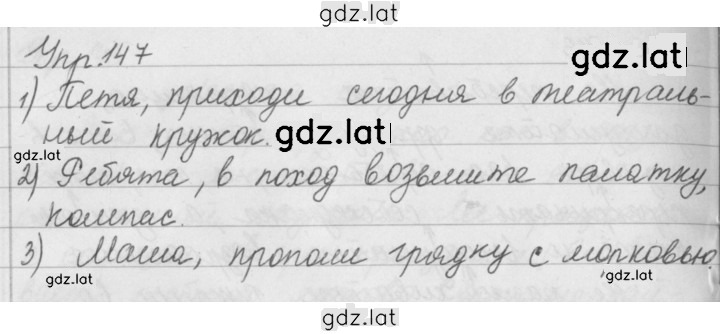 gdz.lat
Упр. 147
gdz.lat
1) Петя, приходи сегодня в театраль-
ный кружок.
gdz.lat
gdz.lat
2) Ребята, в поход возьмите палатку,
компас.
gdz.lat
3) Маша, прополи грядку с морковью
gdz.lat
gdz.lat
gdz.lat